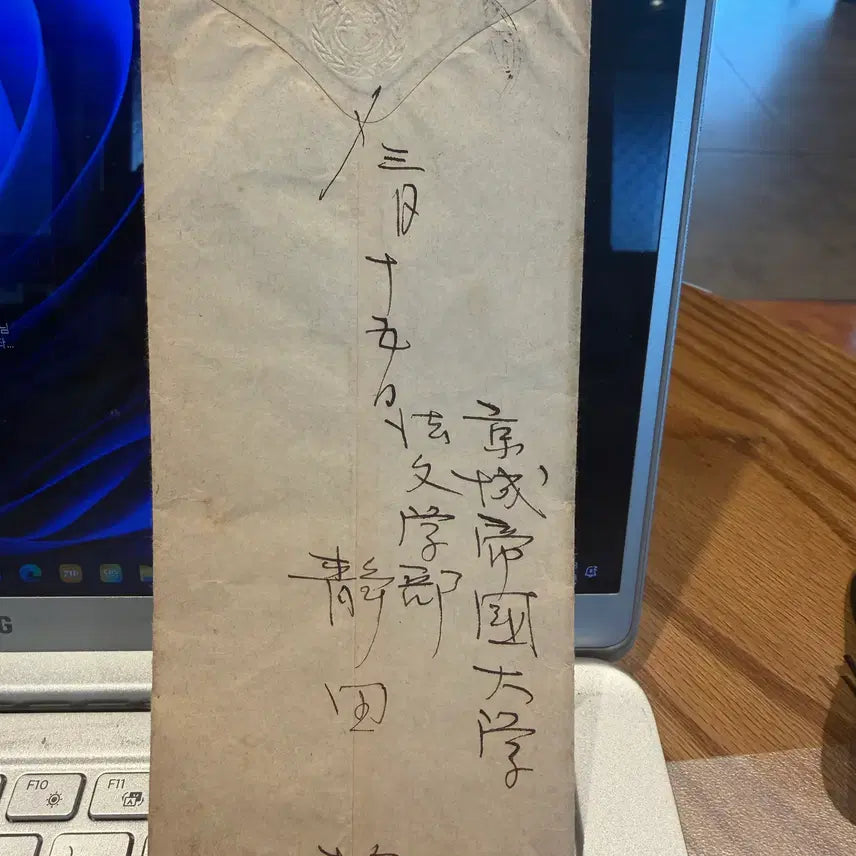 京城帝國大学
法文学部
三月十五日
靜田
F10
F11